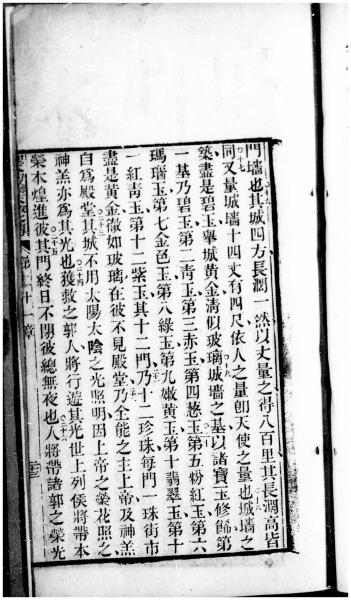 門墻也其城四方長濶一然以丈量之得八百里其長濶高皆
同又量城墻十四丈有四尺依人之量卽天使之量也城墻之
築盡是碧玉舉城黃金淸似玻璃城墻之基以諸寶玉修飾第
一基乃碧玉第二靑玉第三赤玉第四葱玉第五粉紅玉第六
瑪瑙玉第七金色玉第八綠玉第九嫩黃玉第十翡翠玉第十
一紅靑玉第十二紫玉其十二門乃十二珍珠每門一珠街市
盡是黃金徹如玻璃在彼不見殿堂乃全能之主上帝及神羔
自爲殿堂其城不用太陽太陰之光照明因上帝之榮花照之
神羔亦爲其光也獲救之郭人將行遊其光世上列侯將帶本
榮本煌進彼其門終日不閉彼總無夜也人將帶諸郭之榮光
第二十一章